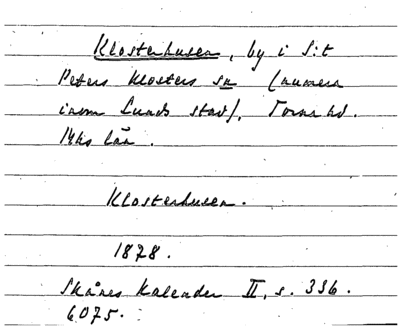 Klosterhusen, by i S:t
Peters Klosters sn (numera
inom Lunds stad), Torna hd.
Mhs län.
Klosterhusen.
1878.
Skånes Kalender II, s. 336.
6075.